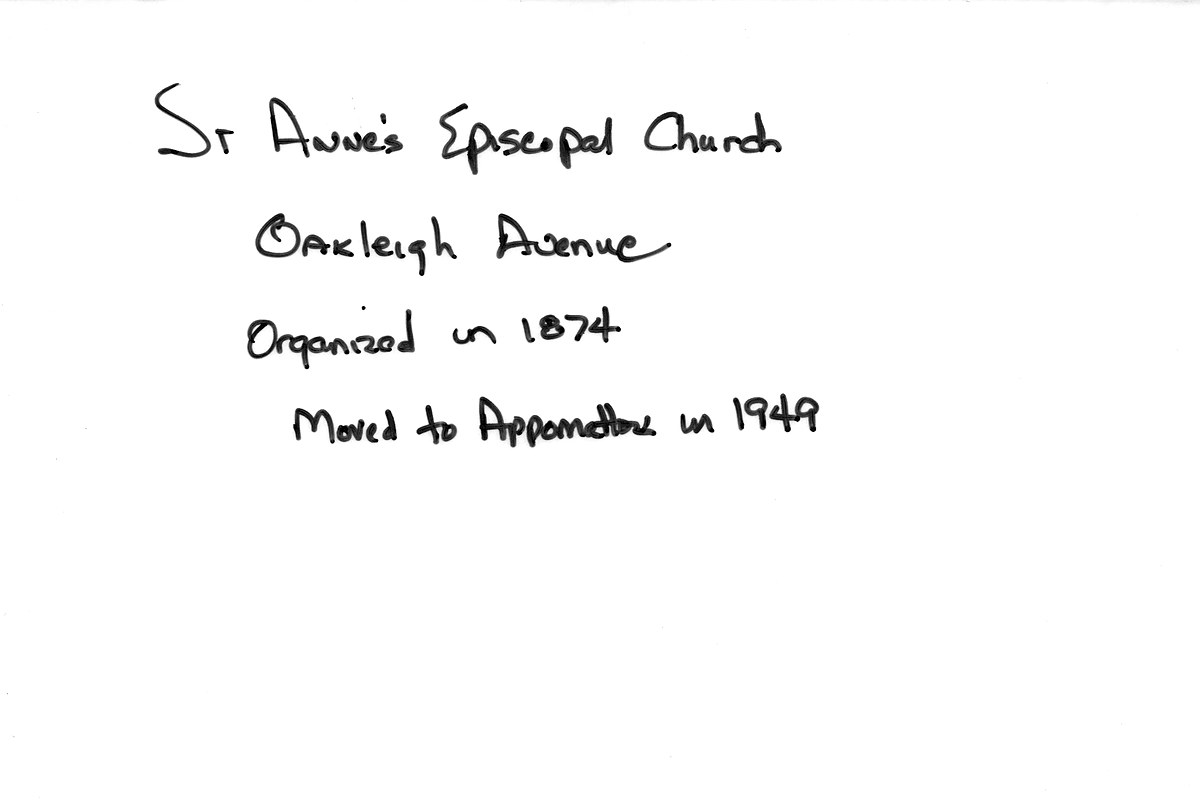 St Anne's Episcopal Church
Oakleigh Avenue
Organized in 1874
Moved to Appomattox in 1949